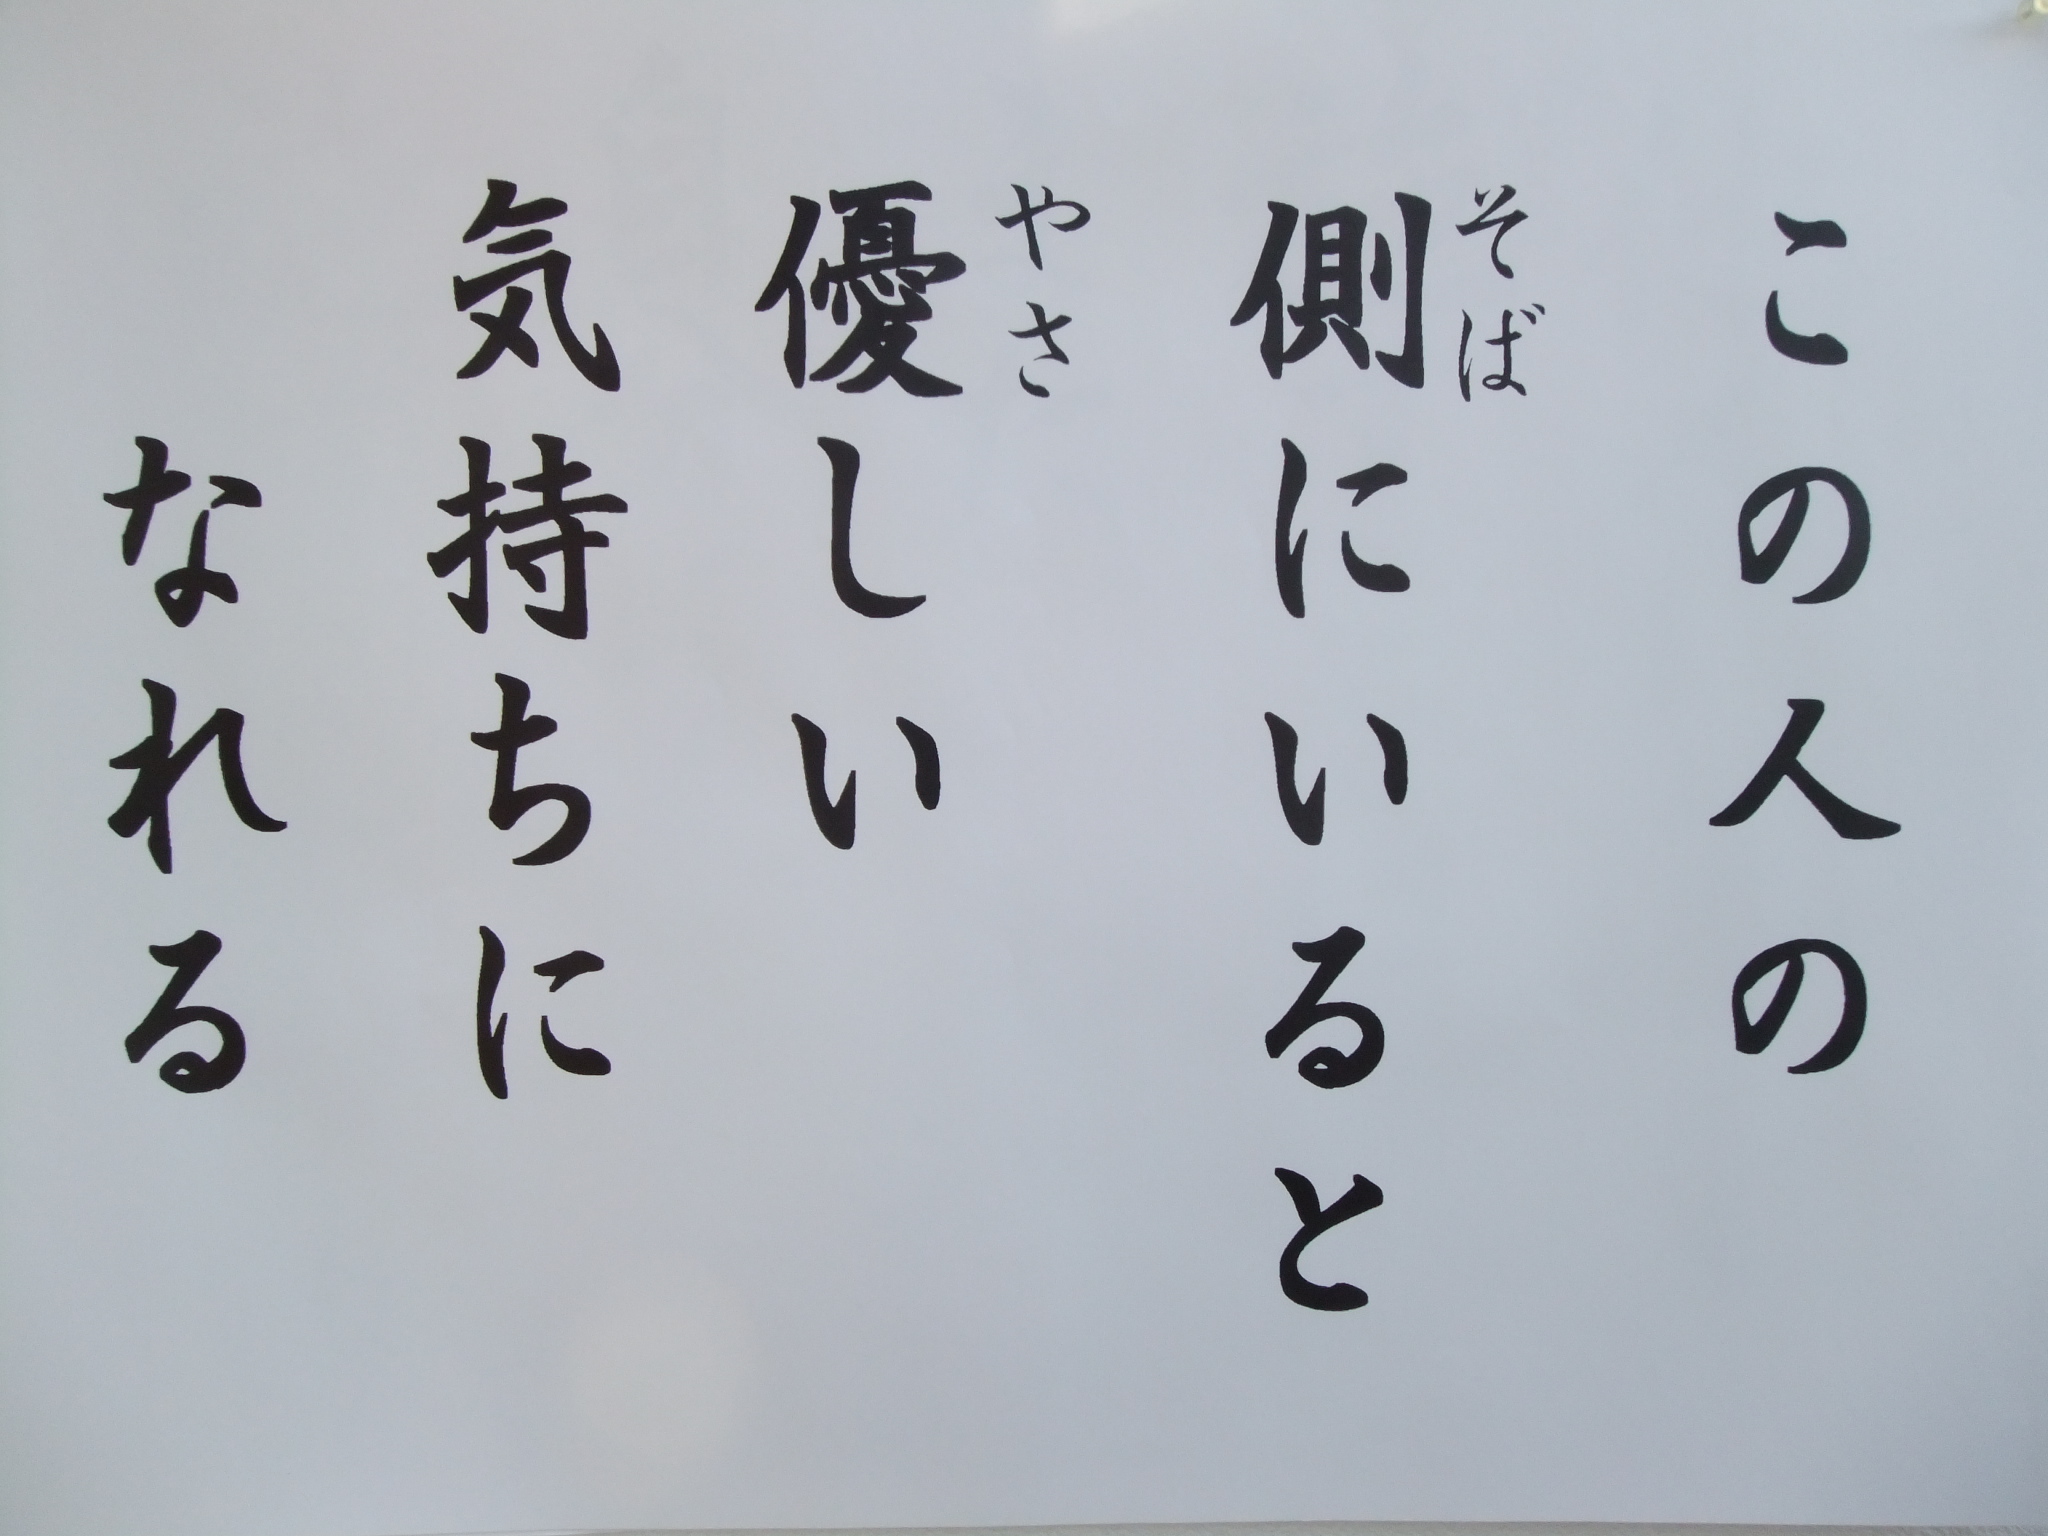 この人の
側にいると
そば
優しい
やさ
気持ちに
なれる